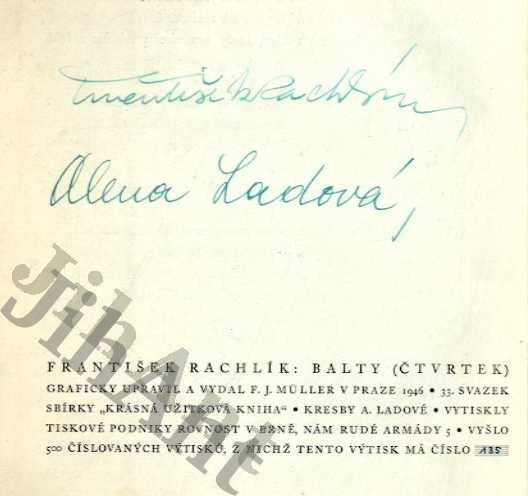 František Rachlík
Alena Ladová,
FRANTIŠEK RACHLÍK: BALTY (ČTVRTEK)
GRAFICKY UPRAVIL A VYDAL F. J. MÜLLER V PRAZE 1946 • 33. SVAZEK
SBÍRKY „KRÁSNÁ UŽITKOVÁ KNIHA“ • KRESBY A. LADOVÉ • VYTISKLY
TISKOVÉ PODNIKY ROVNOST V BRNĚ, NÁM RUDÉ ARMÁDY 5 • VYŠLO
500 ČÍSLOVANÝCH VÝTISKŮ, Z NICHŽ TENTO VÝTISK MÁ ČÍSLO 135
JihAnt